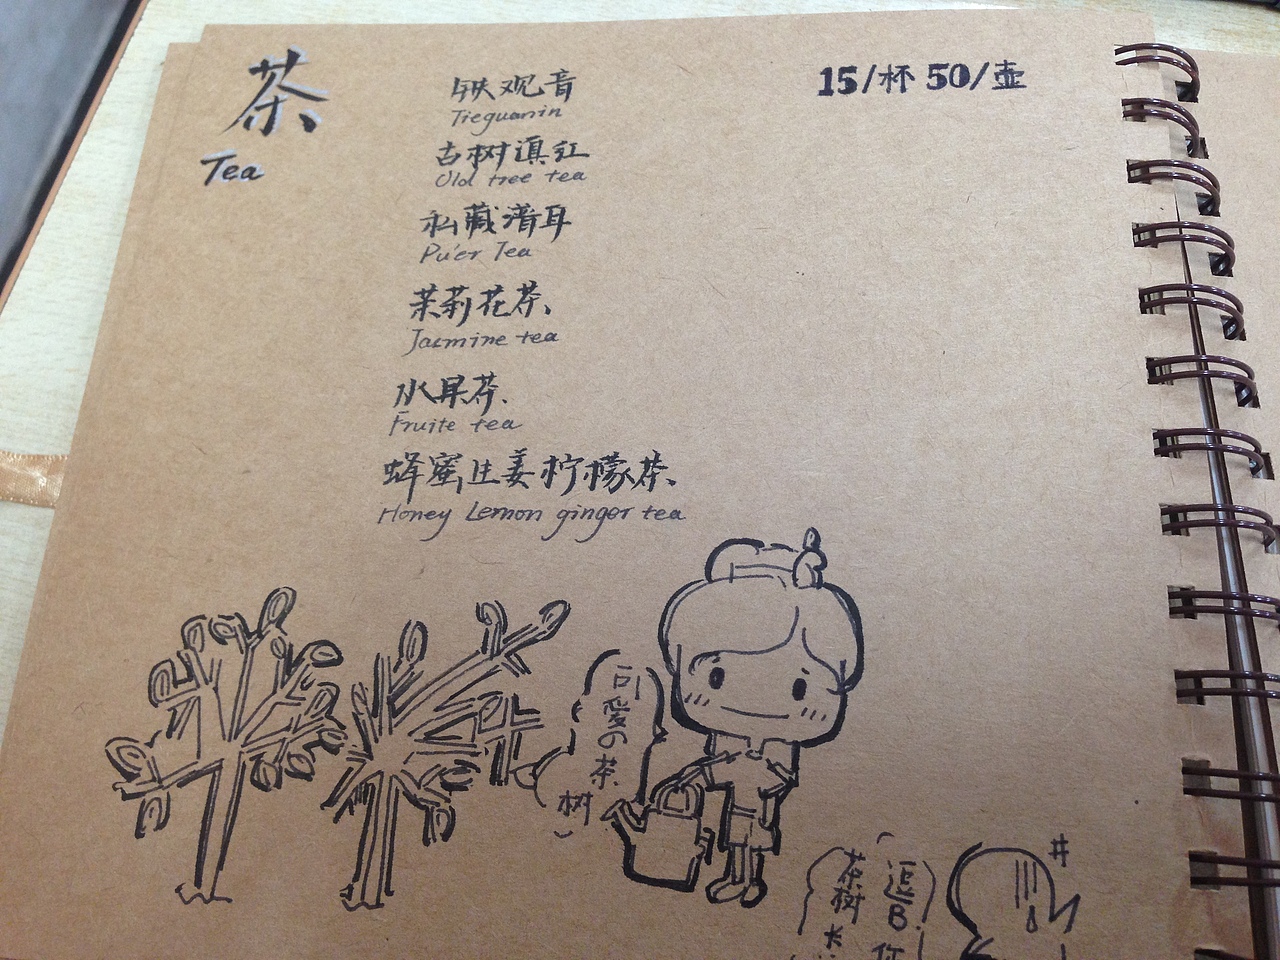 茶
Tea
15/杯 50/壶
铁观音
Tieguanin
古树滇红
Old tree tea
私藏普耳
Pu'er Tea
茉莉花茶
Jasmine tea
水果茶
Fruite tea
蜂蜜生姜柠檬茶
Honey Lemon ginger tea
可爱の茶树
逗B你
茶树